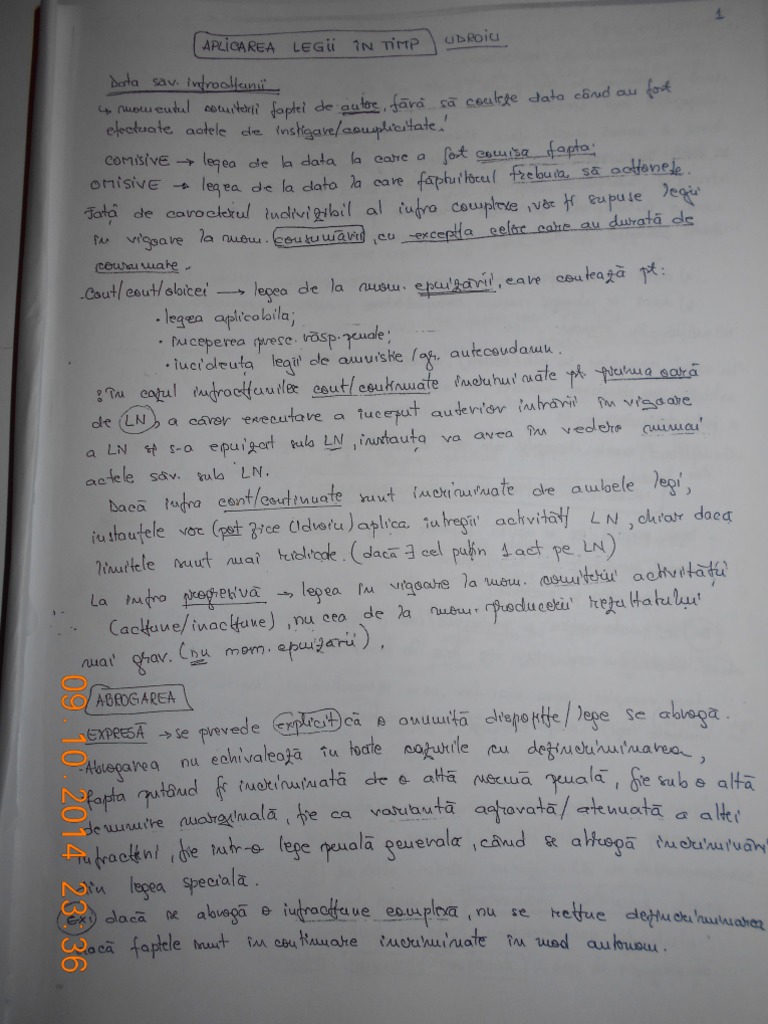 1
APLICAREA LEGII ÎN TIMP UDROIU
Data sav. infracțiunii
↳ momentul comiterii faptei de autor, fără să conteze data când au fost
efectuate actele de instigare/complicitate!
COMISIVE → legea de la data la care a fost comisa fapta;
OMISIVE → legea de la data la care făptuitorul trebuia să acționeze.
Față de caracterul indivizibil al infra complexe, vor fi supuse legii
în vigoare la mom. consumării, cu excepția celor care au durată de
consumare.
Cont/cont/obicei → legea de la mom. epuizării, care contează pt:
• legea aplicabila;
• începerea presc. răsp. penale;
• incidența legii de amnistie/gr. antecondamn.
! În cazul infracțiunilor cont/continuate incriminate pt. prima oară
de LN, a căror executare a început anterior intrării în vigoare
a LN și s-a epuizat sub LN, instanța va avea în vedere numai
actele săv. sub LN.
Dacă infra cont/continuate sunt incriminate de ambele legi,
instanțele vor (pot zice Udroiu) aplica întregii activități LN, chiar daca
limitele sunt mai ridicate. (dacă ∃ cel puțin 1 act pe LN)
La infra progresivă → legea în vigoare la mom. comiterii activității
(acțiune/inacțiune), nu cea de la mom. producerii rezultatului
mai grav. (nu mom. epuizării).
ABROGAREA
EXPRESĂ → se prevede explicit că o anumită dispoziție/lege se abrogă.
-Abrogarea nu echivalează în toate cazurile cu dezincriminarea,
fapta putând fi incriminată de o altă normă penală, fie sub o altă
denumire marginală, fie ca variantă agravată/atenuată a altei
infracțiuni, fie intr-o lege penală generala, când se abrogă incriminări
din legea specială.
Ex: dacă se abrogă o infracțiune complexa, nu se reține dezincriminarea
dacă faptele sunt în continuare incriminate în mod autonom.
09.10.2014 23:36